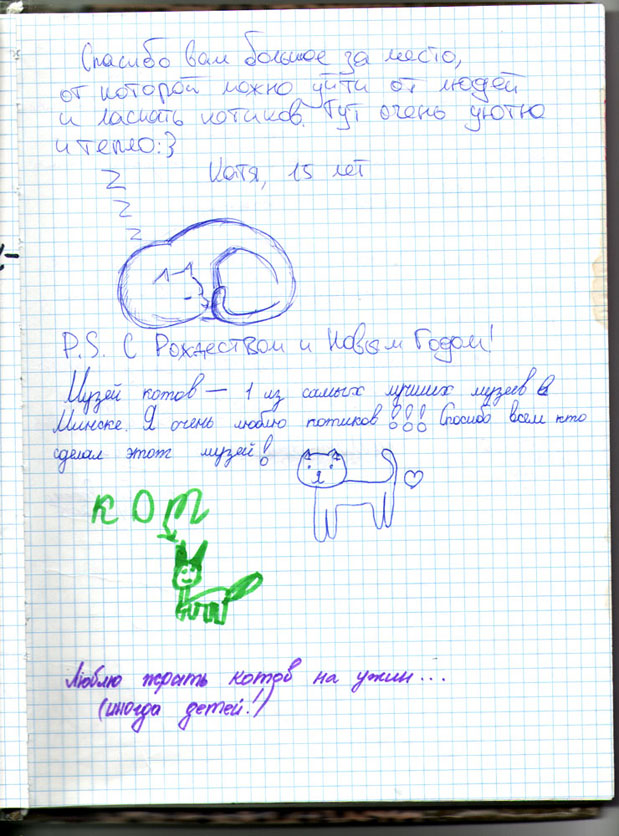 Спасибо вам большое за место,
от которой можно уйти от людей
и ласкать котиков. Тут очень уютно
и тепло:3
Z
Катя, 15 лет
Z
Z
P.S. С Рождеством и Новым Годом!
Музей котов — 1 из самых лучших музеев в
Минске. Я очень люблю котиков!!! Спосибо всем кто
сделал этот музей!
кот
Люблю жрать котов на ужин...
(иногда детей!)